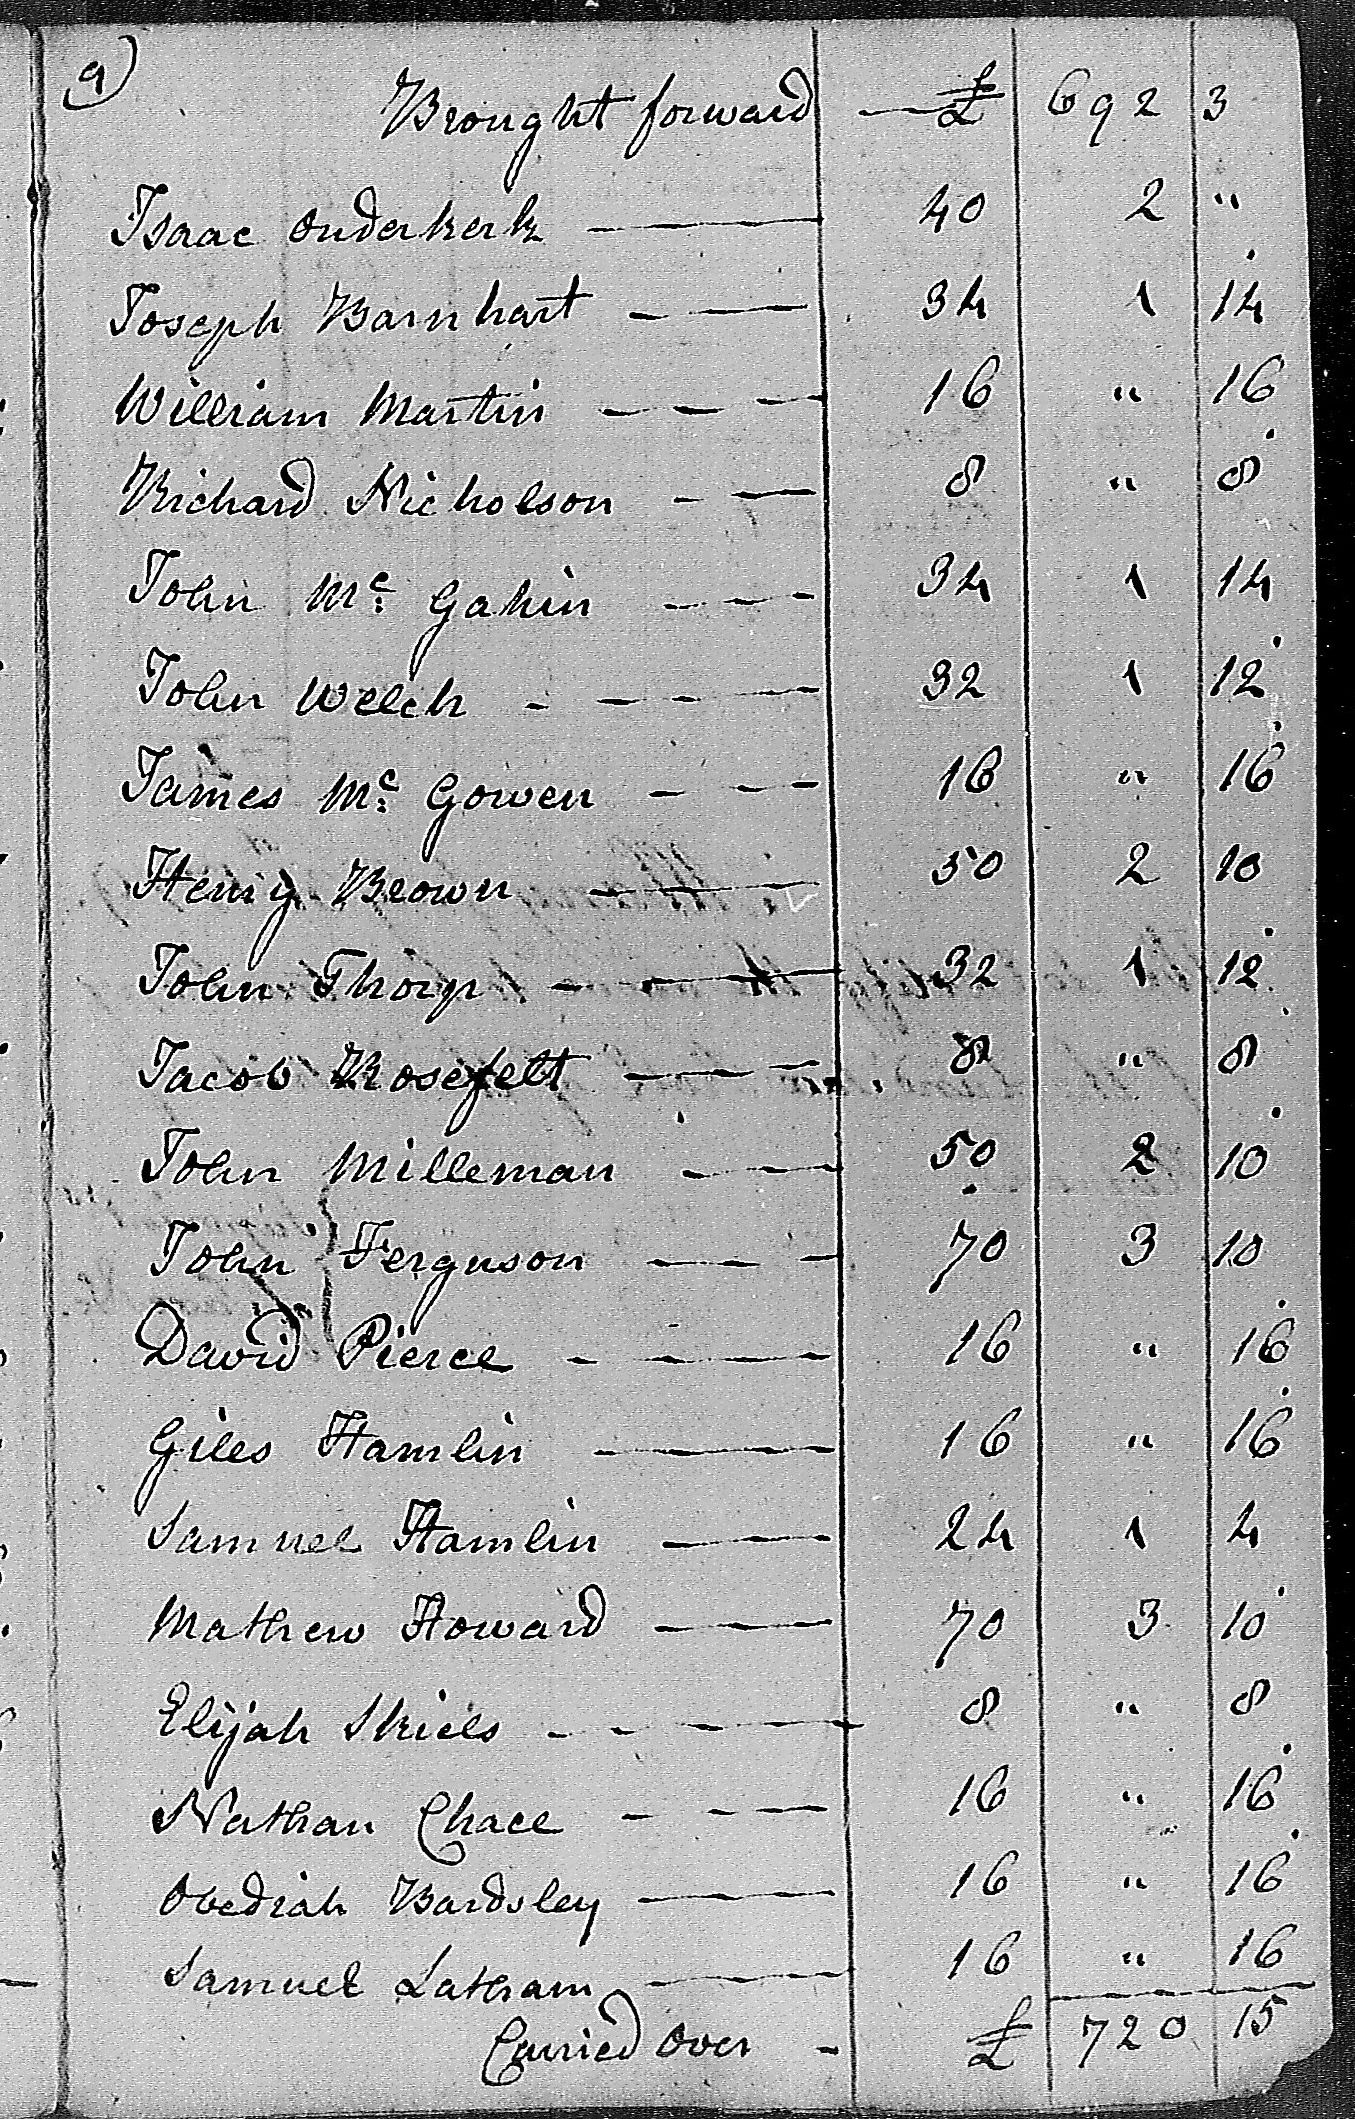 9)
Brought forward — £ 692 3
Isaac Ouderkerk — 40 2 "
Joseph Barnhart — 34 1 14
William Martin — 16 " 16
Richard Nicholson — 8 " 8
John Mc Gahin — 34 1 14
John Welch — 32 1 12
James Mc Gowen — 16 " 16
Henry Brown — 50 2 10
John Thorp — 32 1 12
Jacob Rosefelt — 8 " 8
John Milleman — 50 2 10
John Ferguson — 70 3 10
David Pierce — 16 " 16
Giles Hamlin — 16 " 16
Samuel Hamlin — 24 1 4
Mathew Howard — 70 3 10
Elijah Skiels — 8 " 8
Nathan Chace — 16 " 16
Obediah Bardsley — 16 " 16
Samuel Latham — 16 " 16
Carried Over - £ 720 15